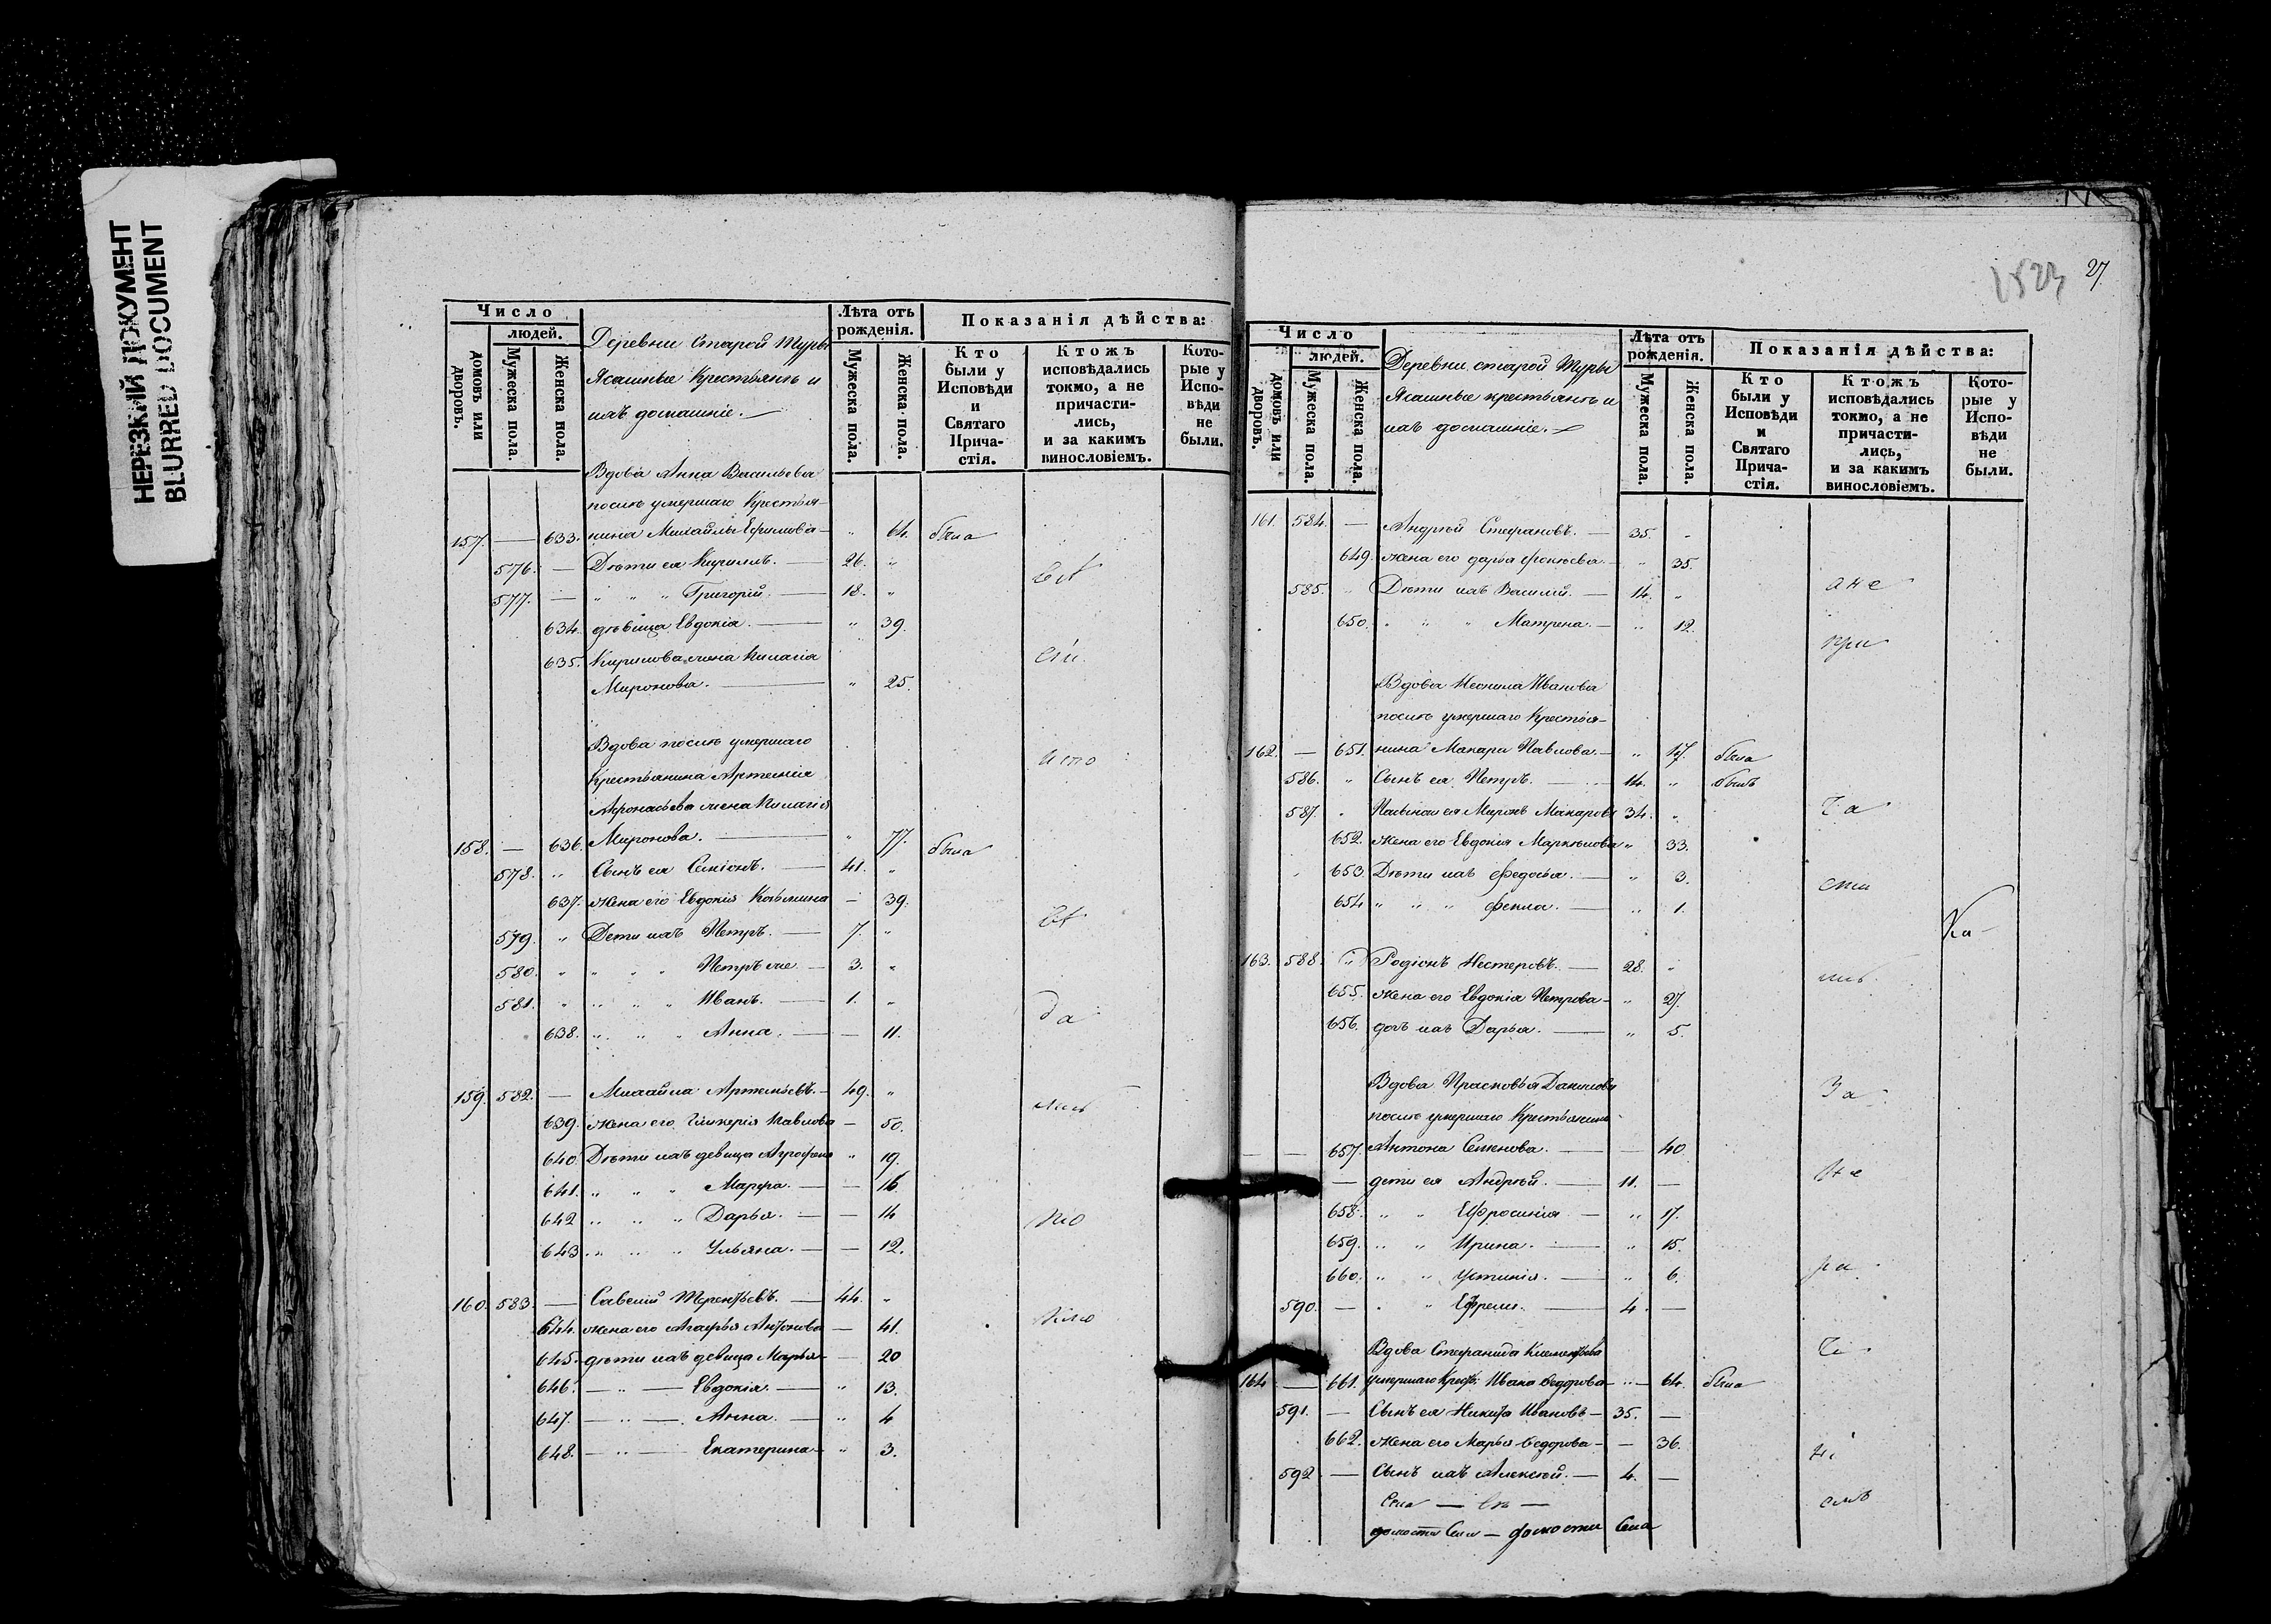 НЕРЕЗКИЙ ДОКУМЕНТ
BLURRED DOCUMENT
Число
людей.
домовъ или дворовъ.
Мужеска пола.
Женска пола.
Деревни Старой Туры
Ясашные Крестьянъ и
ихъ домашніе.
Лѣта отъ рожденія.
Мужеска пола.
Женска пола.
Показанія дѣйства:
Кто были у Исповѣди и Святаго Прича-стія.
Ктожъ исповѣдались токмо, а не причасти-лись, и за какимъ винословіемъ.
Кото-рые у Испо-вѣди не были.
Вдова Анна Васильева
послѣ умершаго Крестья-
157. — 633. нина Михайлы Ефимова — " 64. была
576. — Дѣти ея Кириллъ. — 26. "
577. — " " " Григорій. — 18. "
634. дѣвица Евдокія. — " 39.
635. Кирилова жена Пилагія
Миронова. — " 25.
Вдова послѣ умершаго
Крестьянина Артемія
Афонасьева жена Пилагія
158. — 636. Миронова. — " 77. была
578. " Сынъ ея Семіонъ. — 41. "
637. Жена его Евдокія Козьмина — 39.
579. " Дети ихъ Петръ. — 7. "
580. " " " " Петръ же — 3. "
581. " " " " Иванъ. — 1. "
638. " " " Анна. — — 11.
159. 582. — Михайла Артемьевъ. — 49. "
639. жена его Гликерія Павлова — 50.
640. Дѣти ихъ девица Аграфена " 19.
641. " " " Марфа. — — 16.
642 " " " Дарья. — — 14
643. " " " Ульяна. — — 12.
160. 583. — Савелій Терентьевъ. — 44. "
644. жена его Агафья Антонова — 41.
645. дѣти ихъ девица Марья — — 20
646. — " — Евдокія. — " 13.
647. — " — Анна. — " 4
648. — " — Екатерина — " 3.
исто
да
по
1823
27
Число
людей.
домовъ или дворовъ.
Мужеска пола.
Женска пола.
Деревни старой Туры
Ясашные крестьянъ и
ихъ домашніе.
Лѣта отъ рожденія.
Мужеска пола.
Женска пола.
Показанія дѣйства:
Кто были у Исповѣди и Святаго Прича-стія.
Ктожъ исповѣдались токмо, а не причасти-лись, и за какимъ винословіемъ.
Кото-рые у Испо-вѣди не были.
161. 584. — Андрей Стефановъ. — 35. "
649. жена его дарья Фокѣева. — " 35.
585. " Дѣти ихъ Василій. — 14. "
650. " " " Матрена. — " 12.
Вдова Неонила Иванова
послѣ умершаго Крестья-
162. — 651. нина Макара Павлова. — " 47. была
586. " Сынъ ея Петръ. — 14. " былъ
587. " Пасынокъ ея Миронъ Макаровъ 34. "
652. Жена его Евдокія Маркелова " 33.
653. Дѣти ихъ Федосья. — " 3.
654 " " " Фекла. — " 1.
163. 588. " Родіонъ Нестеровъ. — 28. "
655. Жена его Евдокія Петрова — " 27.
656. дочь ихъ Дарья. — " 5.
Вдова Прасковья Данилова
послѣ умершаго Крестьянина
— — 657. Антона Семенова. — — 40
— дети ея Андрей. — 11. —
658. " " Ефросинія — " 17.
659. " " Ирина. — " 15.
660. " " Устинія. — " 6.
590. — " " Ефремъ. — 4. —
Вдова Стефанида Климентьева
164 — 661. умершаго Крест: Ивана Федорова — " — 64. была
591. — Сынъ ея Никита Ивановъ — 35. —
662. Жена его Марья Федорова — — 36.
592 — Сынъ ихъ Алексѣй. — 4. —
а не
при
ча
сти
лись
За
не
ра